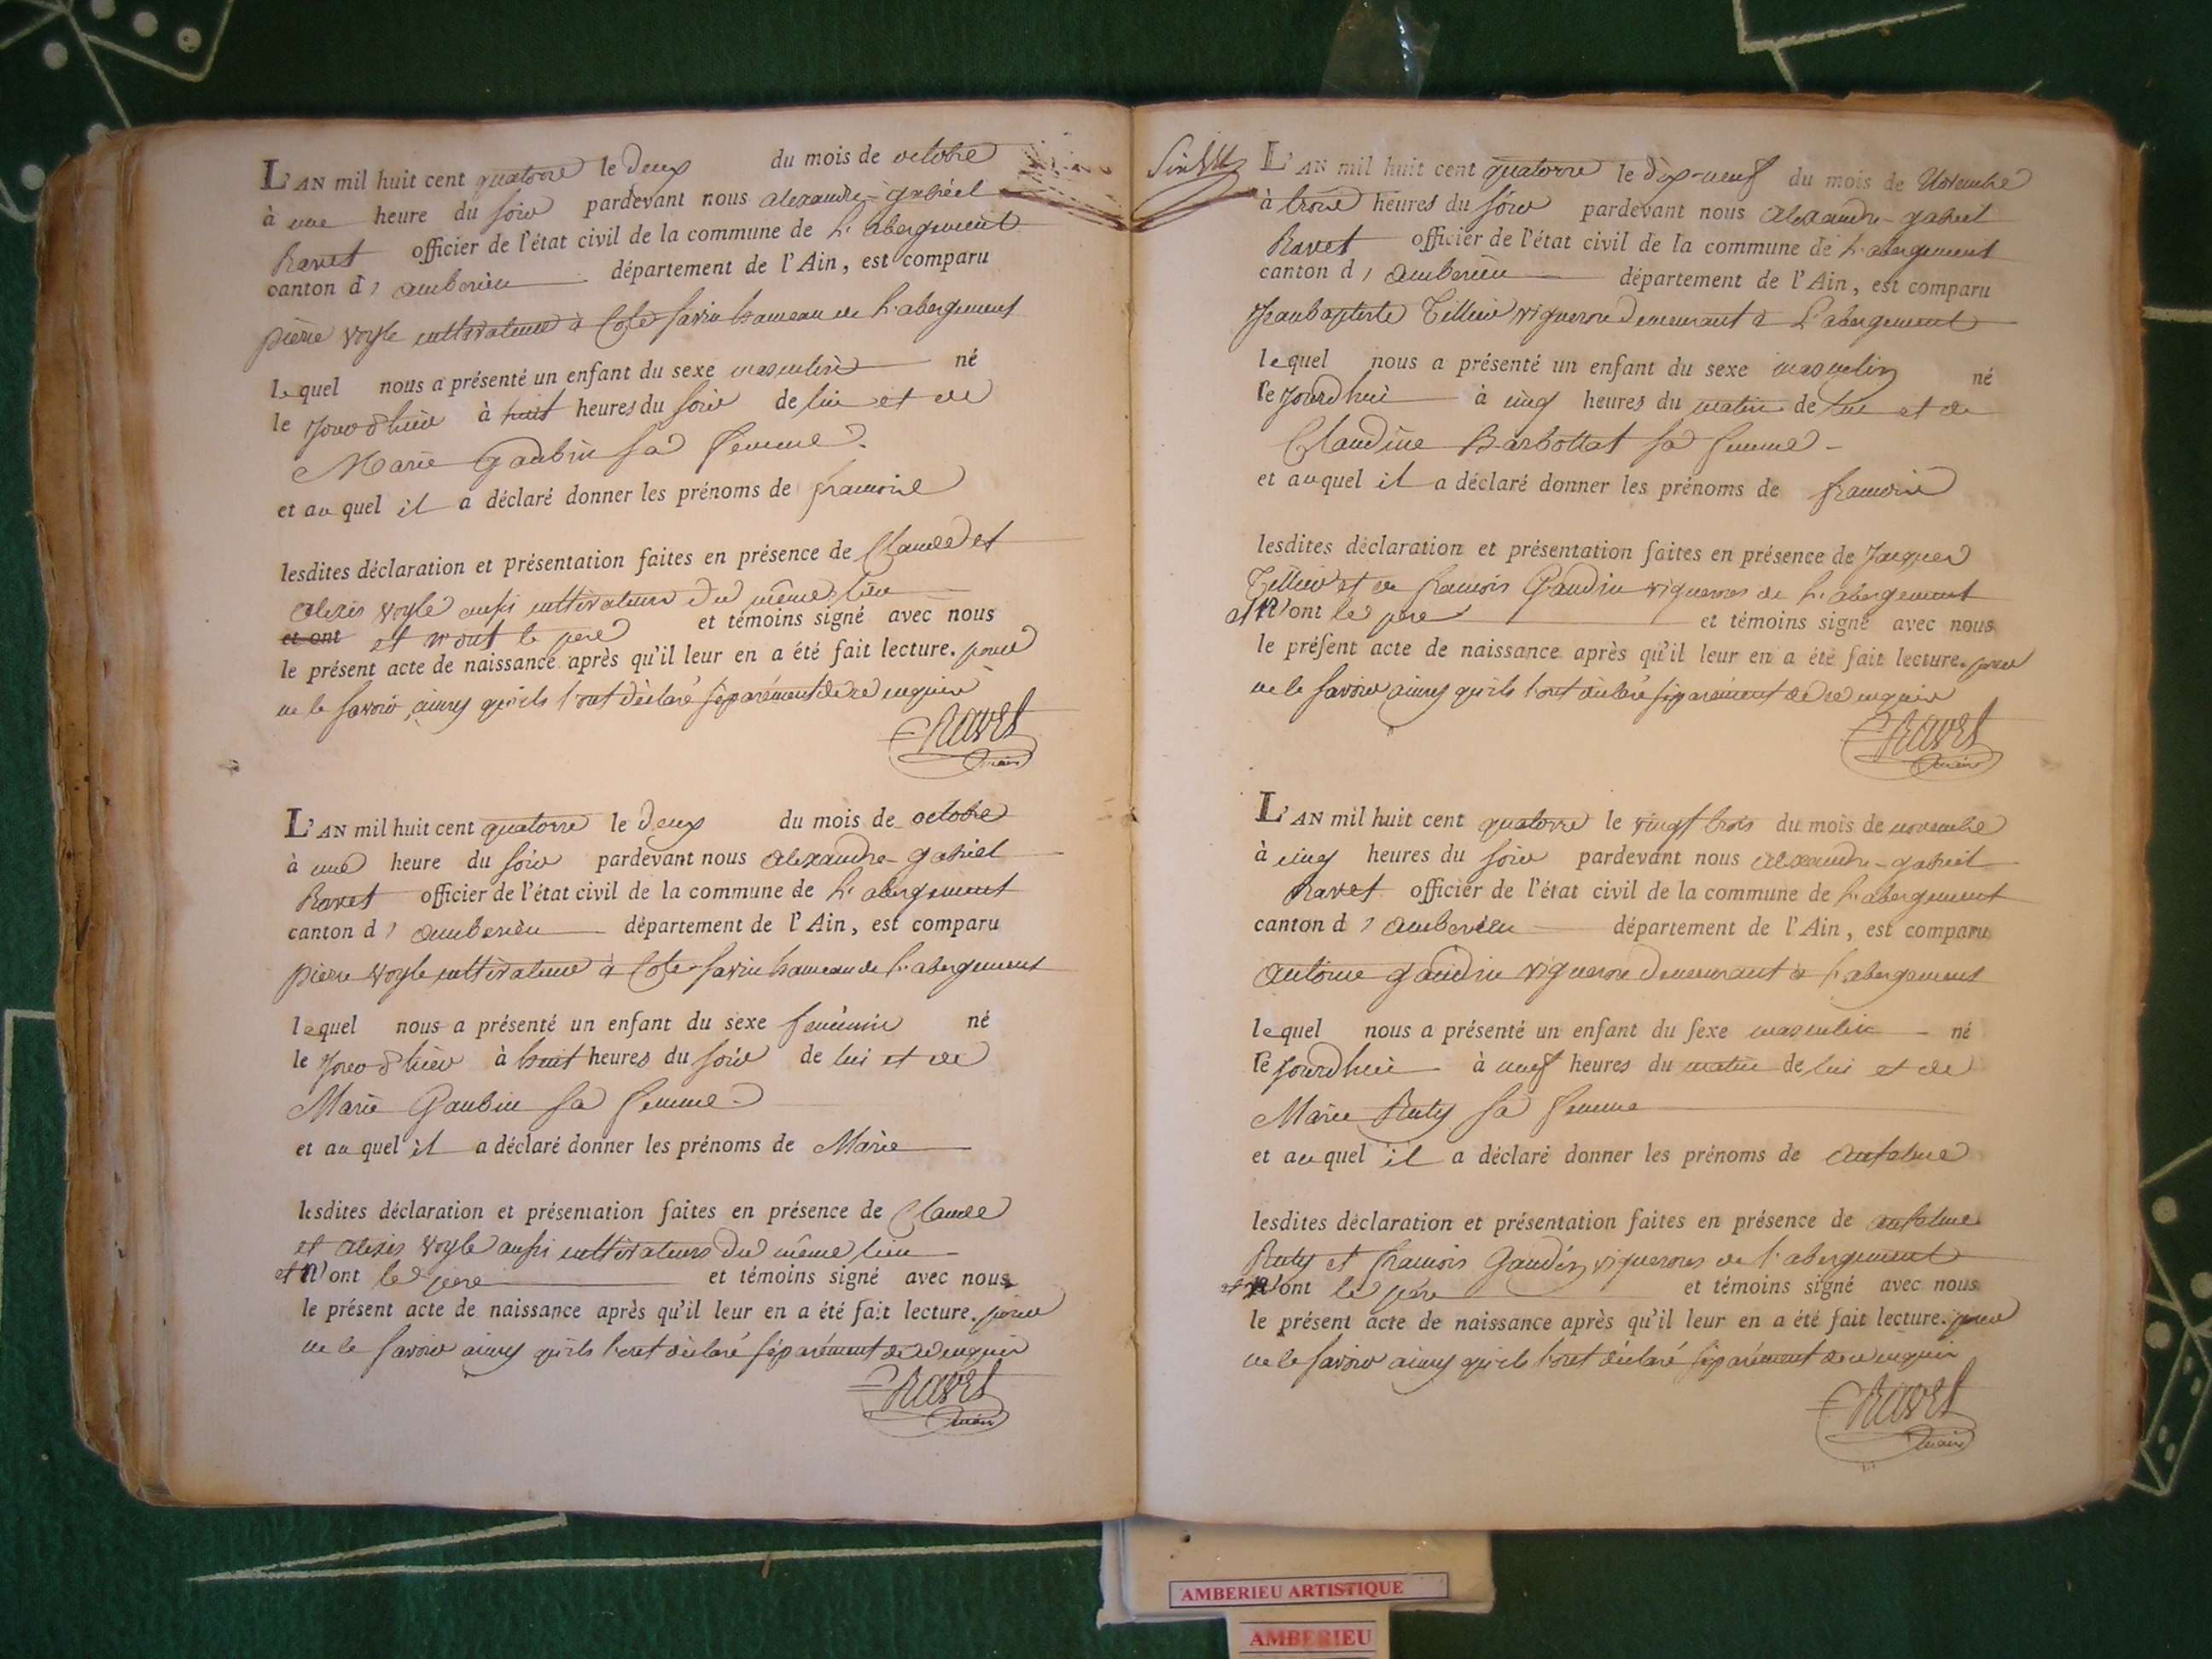 L'AN mil huit cent quatorze le deux du mois de octobre
à une heure du soir pardevant nous alexandre-gabriel
Ravet officier de l'état civil de la commune de L'abergement
canton d' amberieu département de l'Ain, est comparu
pierre voyle cultivateur à Cote-Savin hameau de L'abergement
lequel nous a présenté un enfant du sexe masculin né
le jour d'hier à huit heures du soir de lui et de
Marie Gaubin sa femme.
et auquel il a déclaré donner les prénoms de francois
lesdites déclaration et présentation faites en présence de Claude et
alexis voyle aussi cultivateurs du même lieu
et ont et n'ont le pere et témoins signé avec nous
le présent acte de naissance après qu'il leur en a été fait lecture. pour
ne le savoir, ainsy qu'ils l'ont déclaré séparément de ce enquis
Ravet
maire
L'AN mil huit cent quatorze le deux du mois de octobre
à une heure du soir pardevant nous alexandre-gabriel
Ravet officier de l'état civil de la commune de L'abergement
canton d' amberieu département de l'Ain, est comparu
pierre voyle cultivateur à Cote-Savin hameau de L'abergement
lequel nous a présenté un enfant du sexe feminin né
le jour d'hier à huit heures du soir de lui et de
Marie Gaubin sa femme
et auquel il a déclaré donner les prénoms de Marie
lesdites déclaration et présentation faites en présence de Claude
et alexis voyle aussi cultivateurs du même lieu
et N'ont le pere et témoins signé avec nous
le présent acte de naissance après qu'il leur en a été fait lecture. pour
ne le savoir ainsy qu'ils l'ont déclaré séparément de ce enquis
Ravet
maire
L'AN mil huit cent quatorze le dix-neuf du mois de Novembre
à trois heures du soir pardevant nous alexandre-gabriel
Ravet officier de l'état civil de la commune de L'abergement
canton d' amberieu département de l'Ain, est comparu
Jeanbaptiste Tillier vigneron demeurant à L'abergement
lequel nous a présenté un enfant du sexe masculin né
le jourdhui à cinq heures du matin de lui et de
Claudine Barbottat sa femme
et auquel il a déclaré donner les prénoms de francois
lesdites déclaration et présentation faites en présence de Jacques
Tillier et de francois Gaudin vignerons de L'abergement
et N'ont le pere et témoins signé avec nous
le présent acte de naissance après qu'il leur en a été fait lecture. pour
ne le savoir ainsy qu'ils l'ont déclaré séparément de ce enquis
Ravet
maire
L'AN mil huit cent quatorze le vingt trois du mois de novembre
à cinq heures du soir pardevant nous alexandre-gabriel
Ravet officier de l'état civil de la commune de L'abergement
canton d' amberieu département de l'Ain, est comparu
antoine gaudin vigneron demeurant à L'abergement
lequel nous a présenté un enfant du sexe masculin né
le jourdhui à neuf heures du matin de lui et de
Marie Ruty sa femme
et auquel il a déclaré donner les prénoms de anselme
lesdites déclaration et présentation faites en présence de anselme
Ruty et francois Gaudin vignerons de l'abergement
et N'ont le père et témoins signé avec nous
le présent acte de naissance après qu'il leur en a été fait lecture. pour
ne le savoir ainsy qu'ils l'ont déclaré séparément de ce enquis
Ravet
maire
AMBERIEU ARTISTIQUE
AMBERIEU